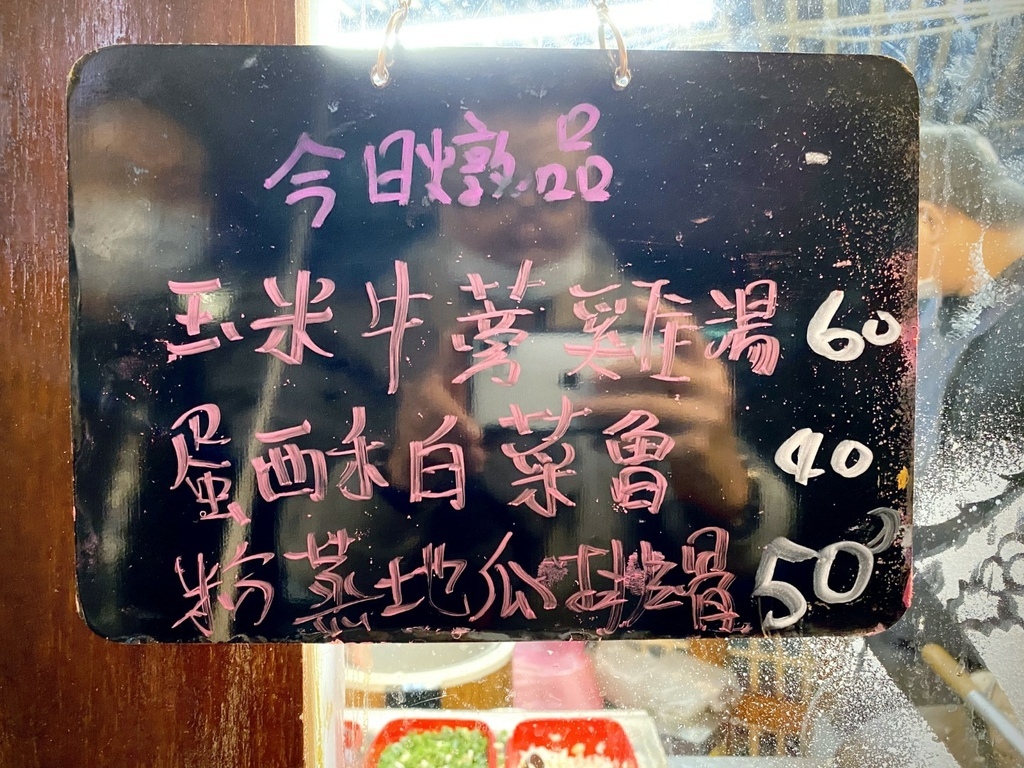 今日燉品
玉米牛蒡雞湯 60
蛋酥白菜魯 40
粉蒸地瓜排骨 50